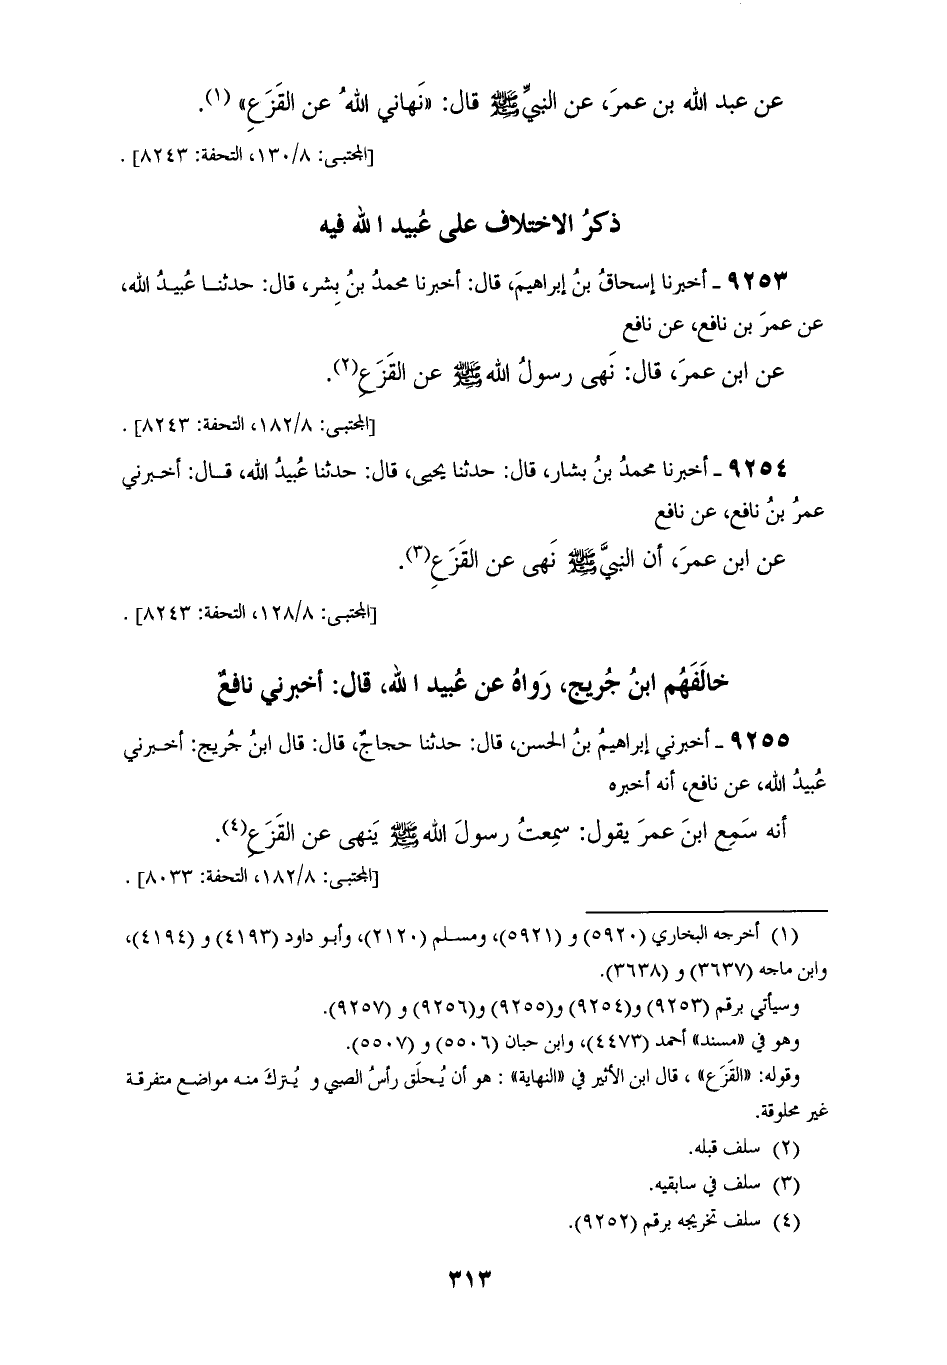 عن عبد الله بن عمرَ، عن النبيِّ ﷺ قال: «نَهاني اللهُ عن القَزَعِ» (١).
[المجتبى: ١٣٠/٨، التحفة: ٨٢٤٣] .
ذكرُ الاختلاف على عُبيد الله فيه
٩٢٥٣ ـ أخبرنا إسحاقُ بنُ إبراهيمَ، قال: أخبرنا محمدُ بنُ بِشر، قال: حدثنا عُبيدُ الله،
عن عمرَ بن نافع، عن نافع
عن ابن عمرَ، قال: نَهى رسولُ الله ﷺ عن القَزَعِ(٢).
[المجتبى: ١٨٢/٨، التحفة: ٨٢٤٣] .
٩٢٥٤ ـ أخبرنا محمدُ بنُ بشار، قال: حدثنا يحيى، قال: حدثنا عُبيدُ الله، قال: أخبرني
عمرُ بنُ نافع، عن نافع
عن ابن عمرَ، أن النبيَّ ﷺ نَهى عن القَزَعِ(٣).
[المجتبى: ١٢٨/٨، التحفة: ٨٢٤٣] .
خالَفَهُم ابنُ جُريج، رَواهُ عن عُبيد الله، قال: أخبرني نافعٌ
٩٢٥٥ ـ أخبرني إبراهيمُ بنُ الحسن، قال: حدثنا حجاجٌ، قال: قال ابنُ جُريج: أخبرني
عُبيدُ الله، عن نافع، أنه أخبره
أنه سَمِع ابنَ عمرَ يقول: سمِعتُ رسولَ الله ﷺ يَنهى عن القَزَعِ(٤).
[المجتبى: ١٨٢/٨، التحفة: ٨٠٣٣] .
(١) أخرجه البخاري (٥٩٢٠) و (٥٩٢١)، ومسلم (٢١٢٠)، وأبو داود (٤١٩٣) و (٤١٩٤)،
وابن ماجه (٣٦٣٧) و (٣٦٣٨).
وسيأتي برقم (٩٢٥٣) و(٩٢٥٤) و(٩٢٥٥) و(٩٢٥٦) و (٩٢٥٧).
وهو في «مسند» أحمد (٤٤٧٣)، وابن حبان (٥٥٠٦) و (٥٥٠٧).
وقوله: «القَزَع» ، قال ابن الأثير في «النهاية» : هو أن يُحلَق رأسُ الصبي و يُتركَ منه مواضع متفرقة
غير محلوقة.
(٢) سلف قبله.
(٣) سلف في سابقيه.
(٤) سلف تخريجه برقم (٩٢٥٢).
٣١٣